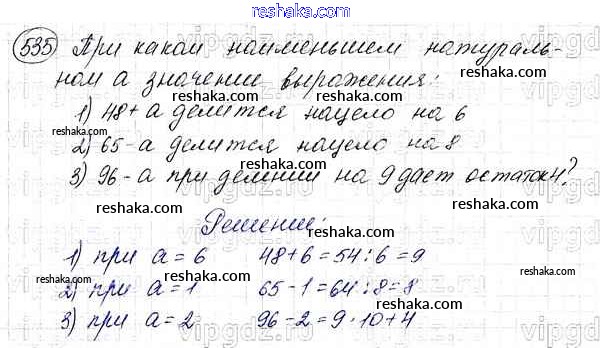 reshaka.com
535 При каком наименьшем натураль-
reshaka.com
ном а значение выражения:
reshaka.com
1) 48+а делится нацело на 6
reshaka.com
2) 65-а делится нацело на 8
3) 96-а при делении на 9 дает остаток 4?
reshaka.com
Решение:
1) при а=6 48+6=54:6=9
reshaka.com
2) при а=1 65-1=64:8=8
reshaka.com
3) при а=2 96-2=9·10+4
reshaka.com